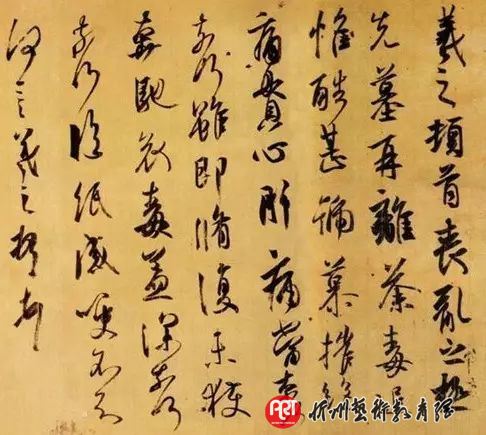 羲之頓首喪亂之極
先墓再離荼毒追
惟酷甚號慕摧絕
痛貫心肝痛當奈
奈何雖即脩復未獲
奔馳哀毒益深奈何
奈何臨紙感哽不知
何言羲之頓首
ART
忻州藝術教育